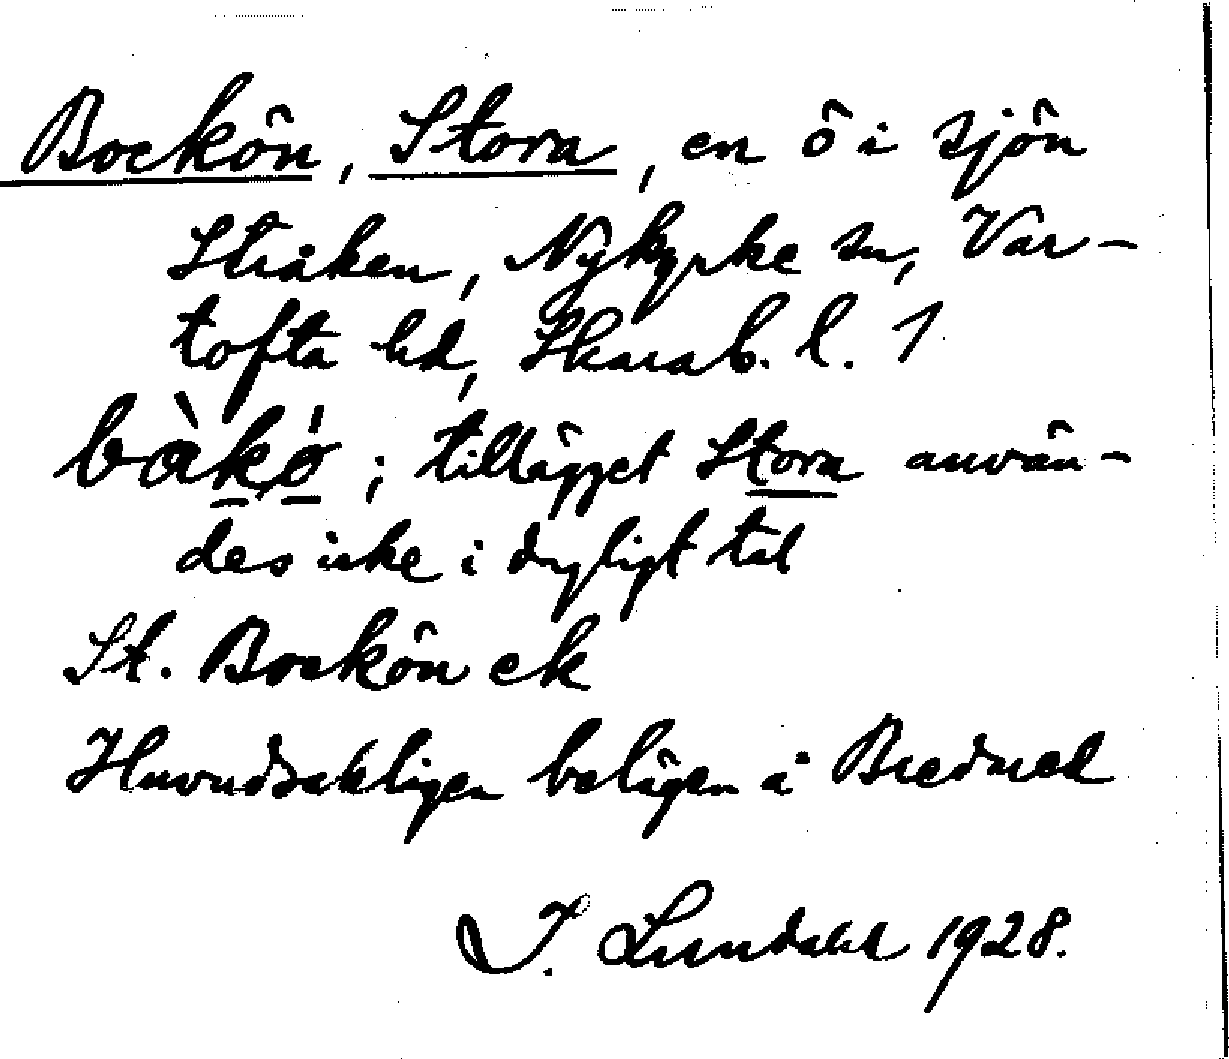 Bockön, Stora, en ö i sjön
Stråken, Nykyrke sn, Var-
tofta hd, Skarab. l. 1
bàkö́; tillägget Stora använ-
des icke i dagligt tal
St. Bockön ek
Huvudsakligen belägen å Bredmed
I. Lundahl 1928.